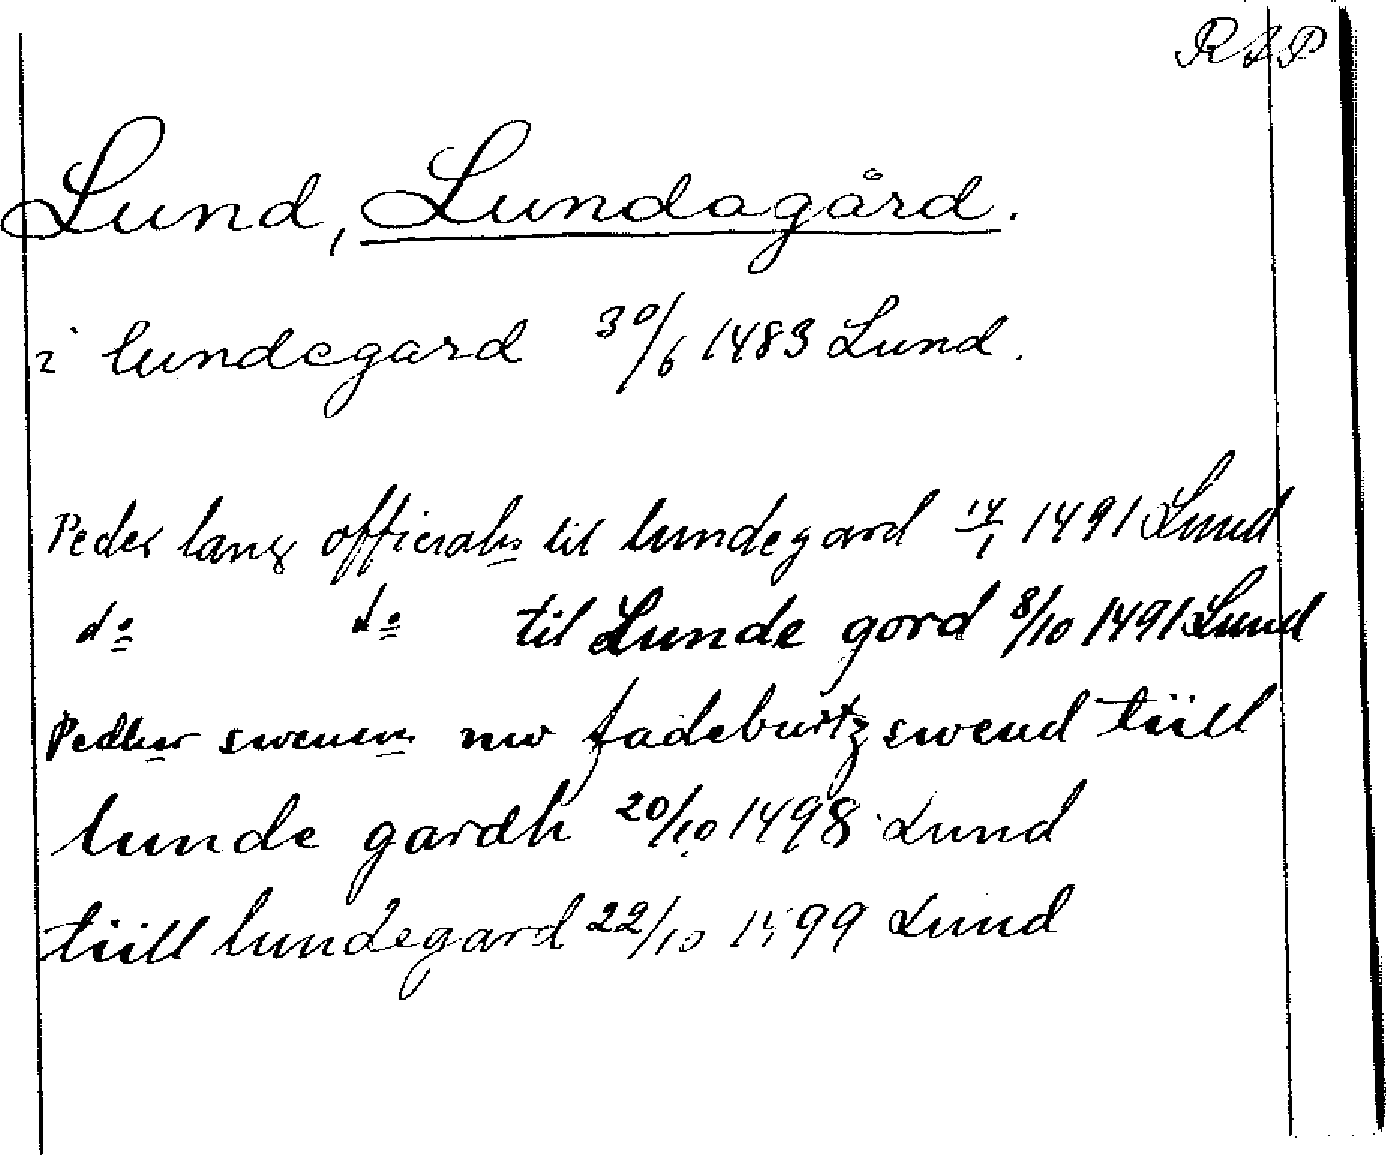 RAP
Lund, Lundagård.
i lundegard 30/6 1483 Lund.
Peder lang officials til lundegard 14/1 1491 Lund
do do til Lunde gord 8/10 1491 Lund
Pedher swensen nw fadeburtz swend tiill
lunde gardh 20/10 1498 Lund
tiill lundegard 22/10 1499 Lund